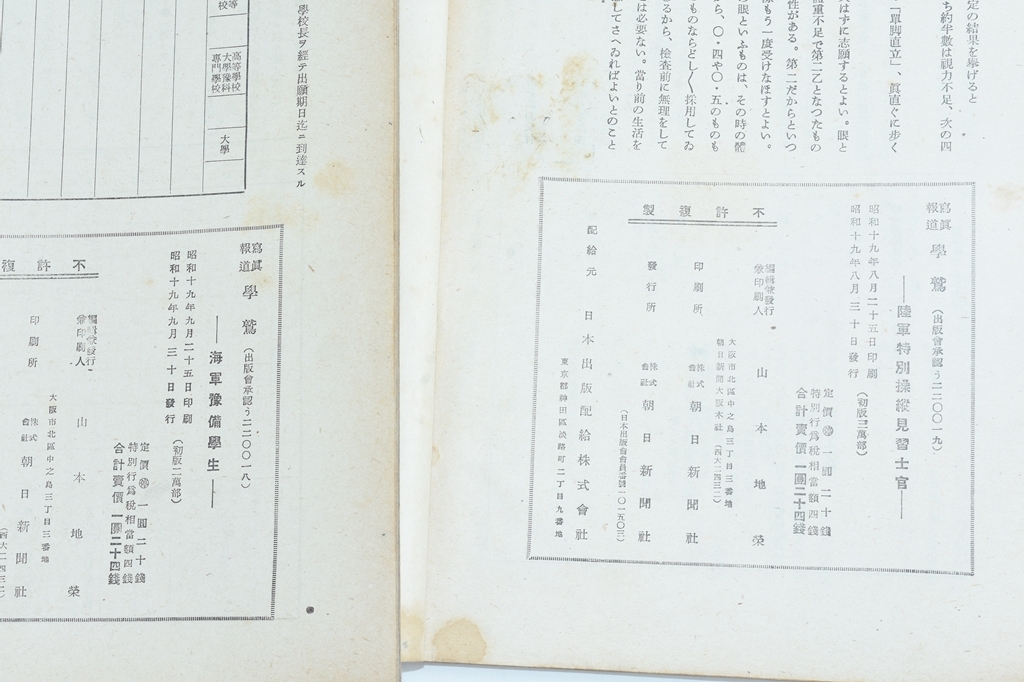 定の結果を擧げると
ち約半數は視力不足、次の四
「單脚直立」、眞直ぐに步く
はずに志願するとよい。眼と
重不足で第二乙となつたもの
性がある。第二だからといつ
もう一度受けなほすとよい。
の眼といふものは、その時の體
ら、〇・四や〇・五のものも
ものならどし〳〵採用してゐ
るから、檢査前に無理をして
は必要ない。當り前の生活を
してさへゐればよいとのこと
寫眞報道 學鷲 (出版會承認う二二〇〇一九)
――陸軍特別操縱見習士官――
昭和十九年八月二十五日印刷
昭和十九年八月三十日發行 (初版三萬部)
定價㊕一圓二十錢
特別行爲稅相當額四錢
合計賣價一圓二十四錢
不許複製
編輯兼發行兼印刷人 山本地榮
大阪市北區中之島三丁目三番地
朝日新聞大阪本社 (西大二四三二)
印刷所 株式會社 朝日新聞社
發行所 株式會社 朝日新聞社
(日本出版會會員番號一〇一五〇三)
配給元 日本出版配給株式會社
東京都神田區淡路町二丁目九番地
學校長ヲ經テ出願期日迄ニ到達スル
等
校
高等學校
大學豫科
專門學校
大學
寫眞報道 學鷲 (出版會承認う二二〇〇一八)
――海軍豫備學生――
昭和十九年九月二十五日印刷
昭和十九年九月三十日發行 (初版二萬部)
定價㊕一圓二十錢
特別行爲稅相當額四錢
合計賣價一圓二十四錢
不許複
編輯兼發行兼印刷人 山本地榮
大阪市北區中之島三丁目三番地
印刷所 株式會社 朝日新聞社
(西大二四三二)